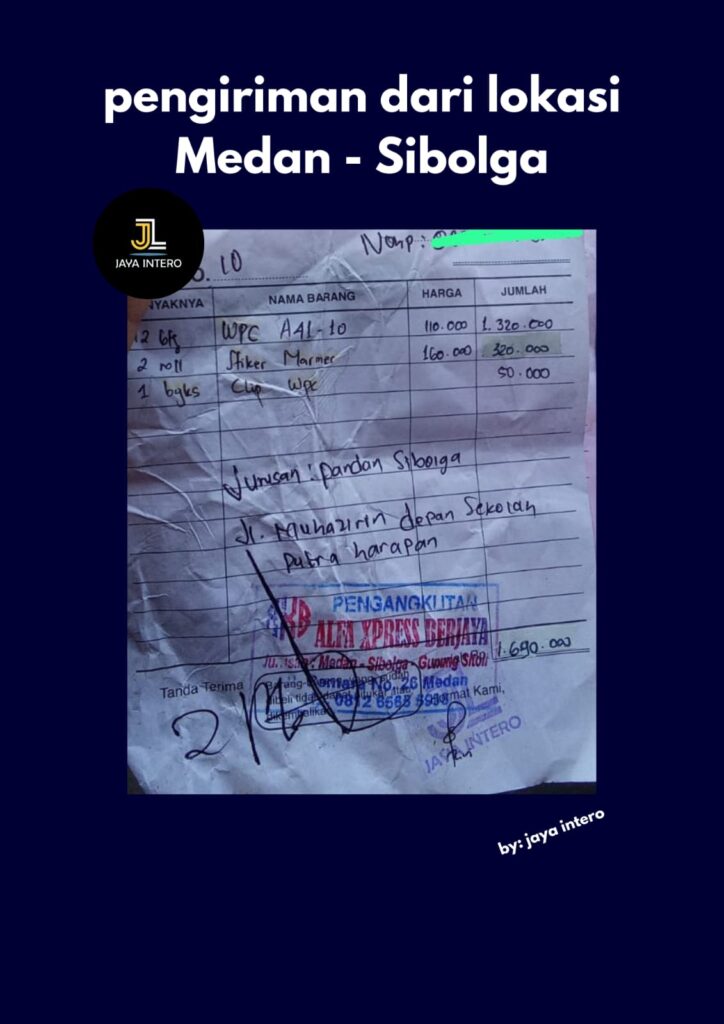 pengiriman dari lokasi
Medan - Sibolga
JL
JAYA INTERO
Nohp:
O. 10
NYAKNYA NAMA BARANG HARGA JUMLAH
12 btg WPC A41-10 110.000 1.320.000
2 roll Stiker Marmer 160.000 320.000
1 bgks Clip Wpc 50.000
Jurusan : pandan Sibolga
Jl. Muhazirin depan Sekolah
Putra harapan
PENGANGKUTAN
ALFA XPRESS BERJAYA
Medan - Sibolga - Gunung Sitoli
No. 26 Medan
1.690.000
Tanda Terima
dibeli tidak dapat ditukar atau
dikembalikan
Hormat Kami,
JAYA INTERO
by: jaya intero